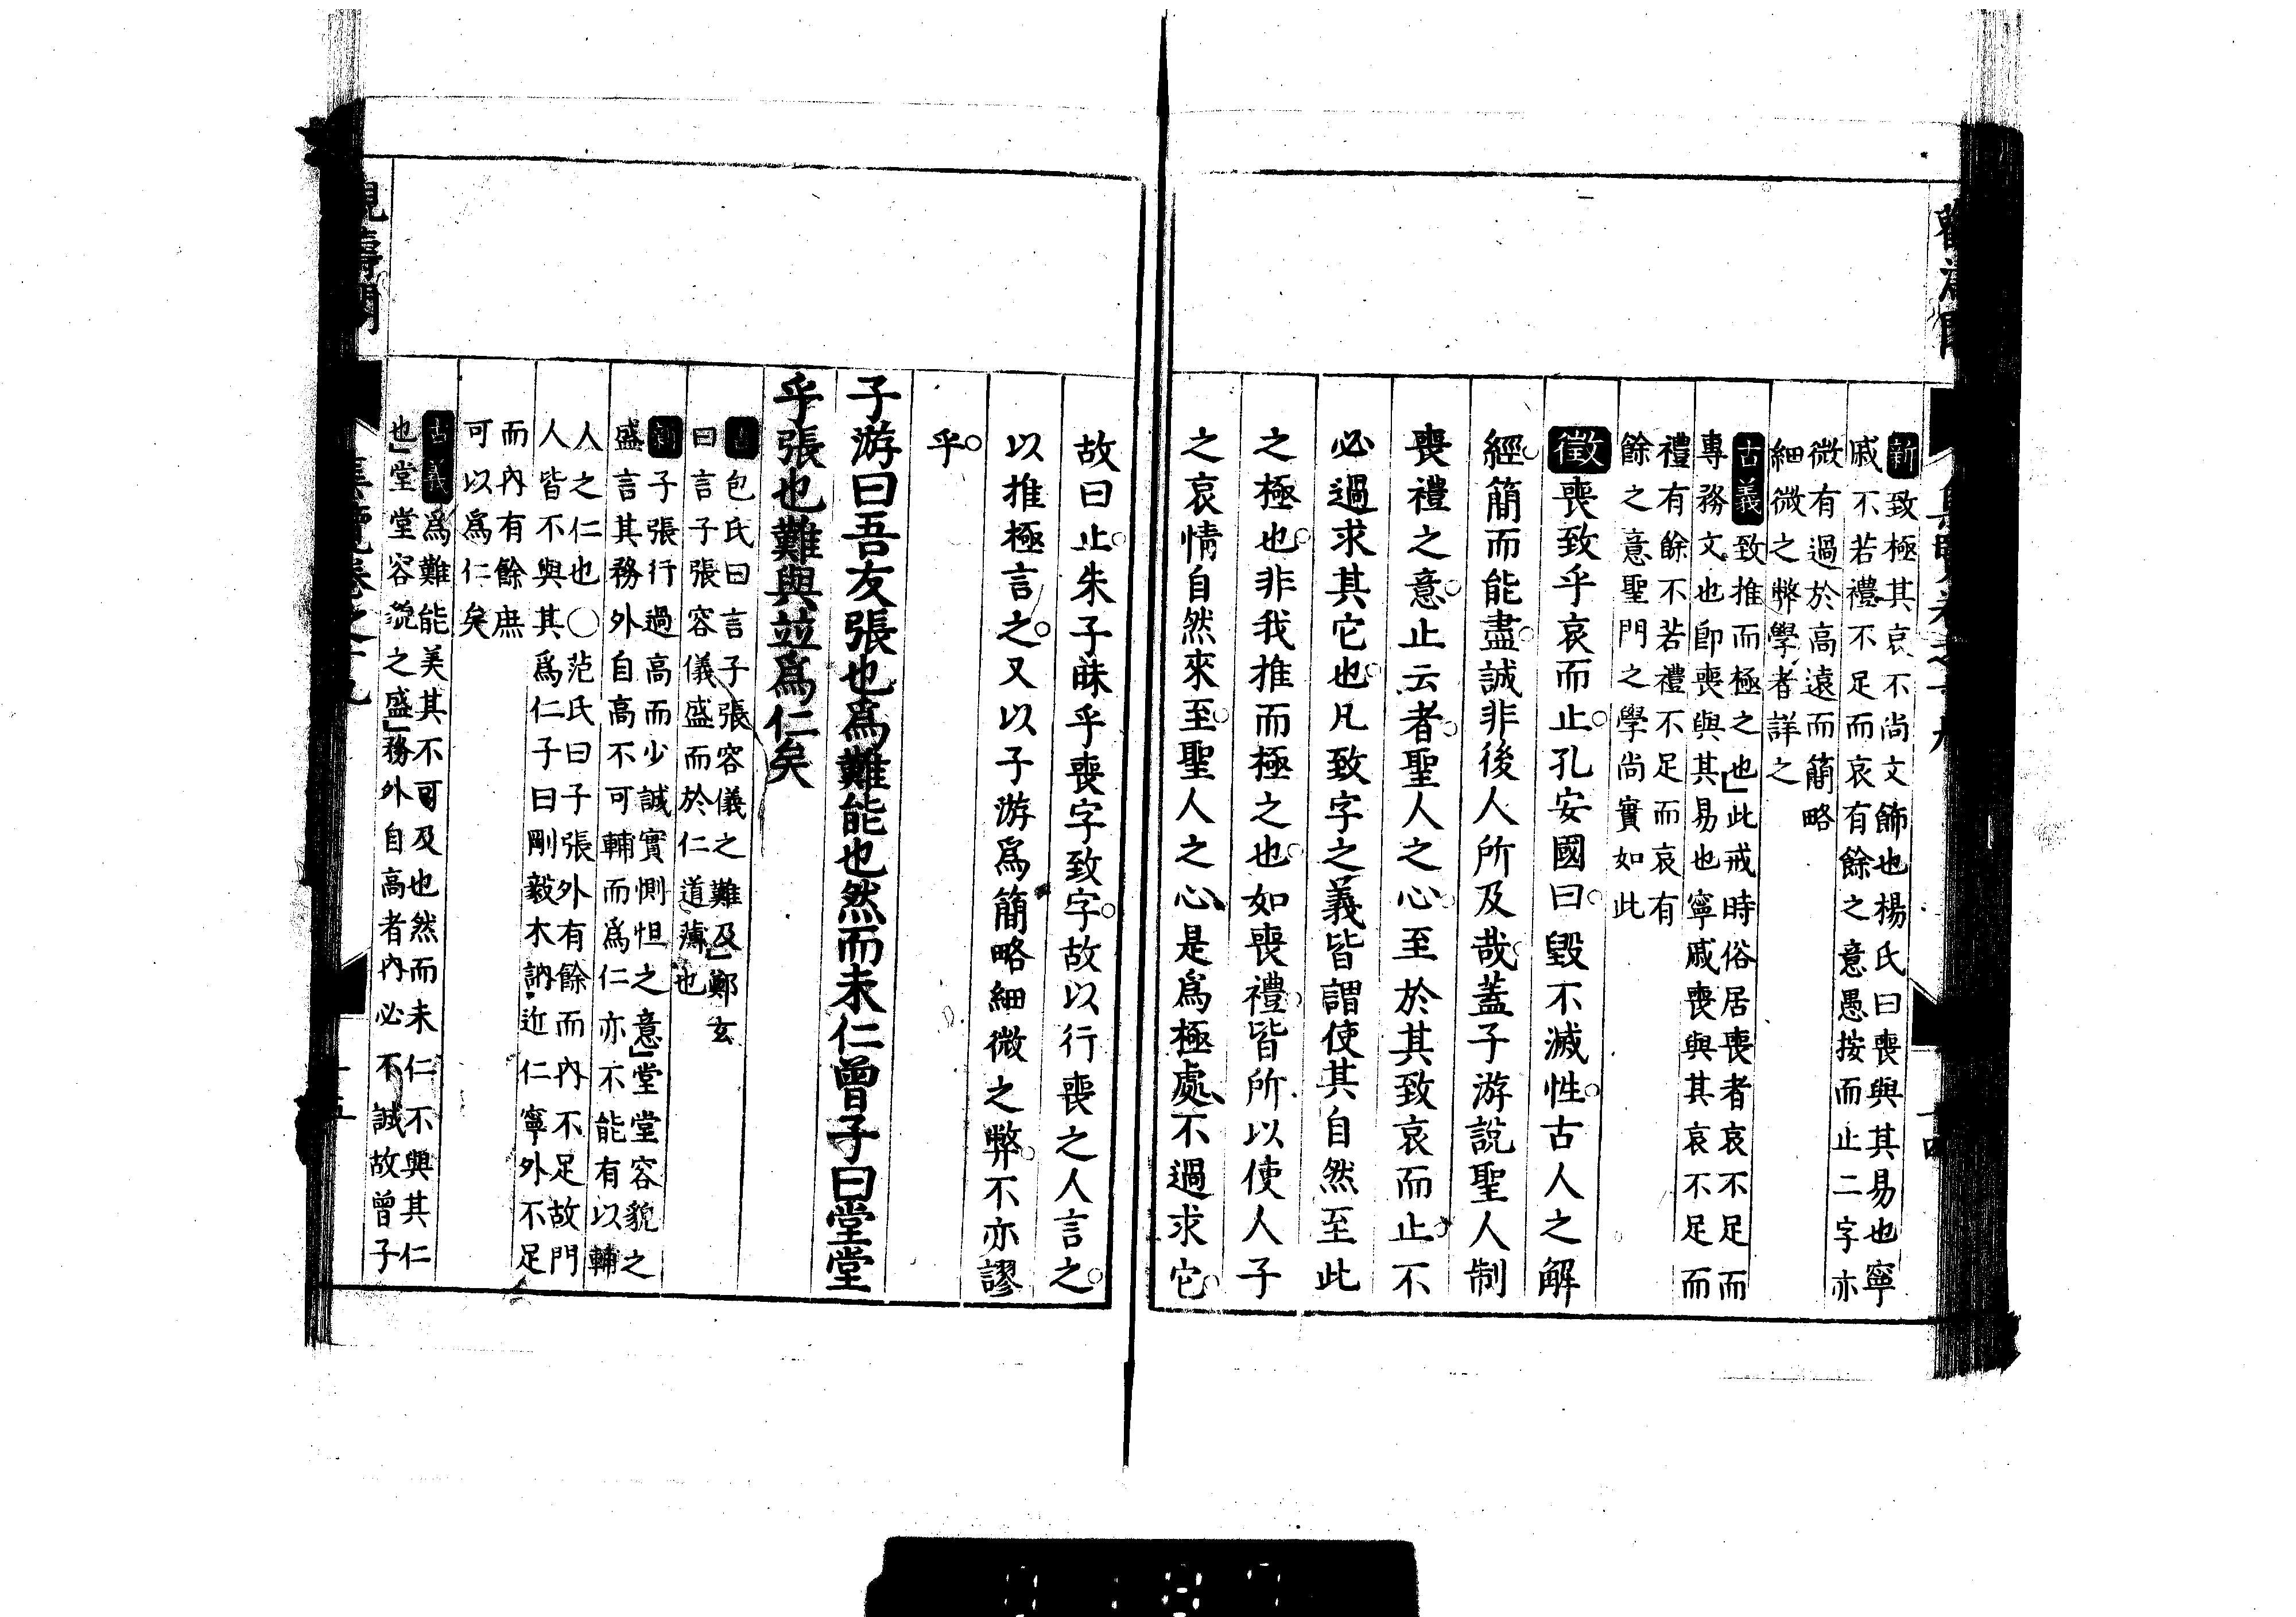 新致極其哀不尚文飾也楊氏曰喪與其易也寧
戚不若禮不足而哀有餘之意愚按而止二字亦
微有過於高遠而簡略
細微之弊學者詳之
古義致推而極之也此戒時俗居喪者哀不足而
專務文也卽喪與其易也寧戚喪與其哀不足而
禮有餘不若禮不足而哀有
餘之意聖門之學尚實如此
徵喪致乎哀而止孔安國曰毀不滅性古人之解
經簡而能盡誠非後人所及哉蓋子游說聖人制
喪禮之意止云者聖人之心至於其致哀而止不
必過求其它也凡致字之義皆謂使其自然至此
之極也非我推而極之也如喪禮皆所以使人子
之哀情自然來至聖人之心是爲極處不過求它
故曰止朱子昧乎喪字致字故以行喪之人言之
以推極言之又以子游爲簡略細微之弊不亦謬
乎
子游曰吾友張也爲難能也然而未仁曾子曰堂堂
乎張也難與並爲仁矣
包氏曰言子張容儀之難及鄭玄
曰言子張容儀盛而於仁道薄也
新子張行過高而少誠實惻怛之意堂堂容貌之
盛言其務外自高不可輔而爲仁亦不能有以輔
人之仁也○范氏曰子張外有餘而內不足故門
人皆不與其爲仁子曰剛毅木訥近仁寧外不足
而內有餘庶
可以爲仁矣
古義爲難能美其不可及也然而未仁不與其仁
也堂堂容貌之盛務外自高者內必不誠故曾子